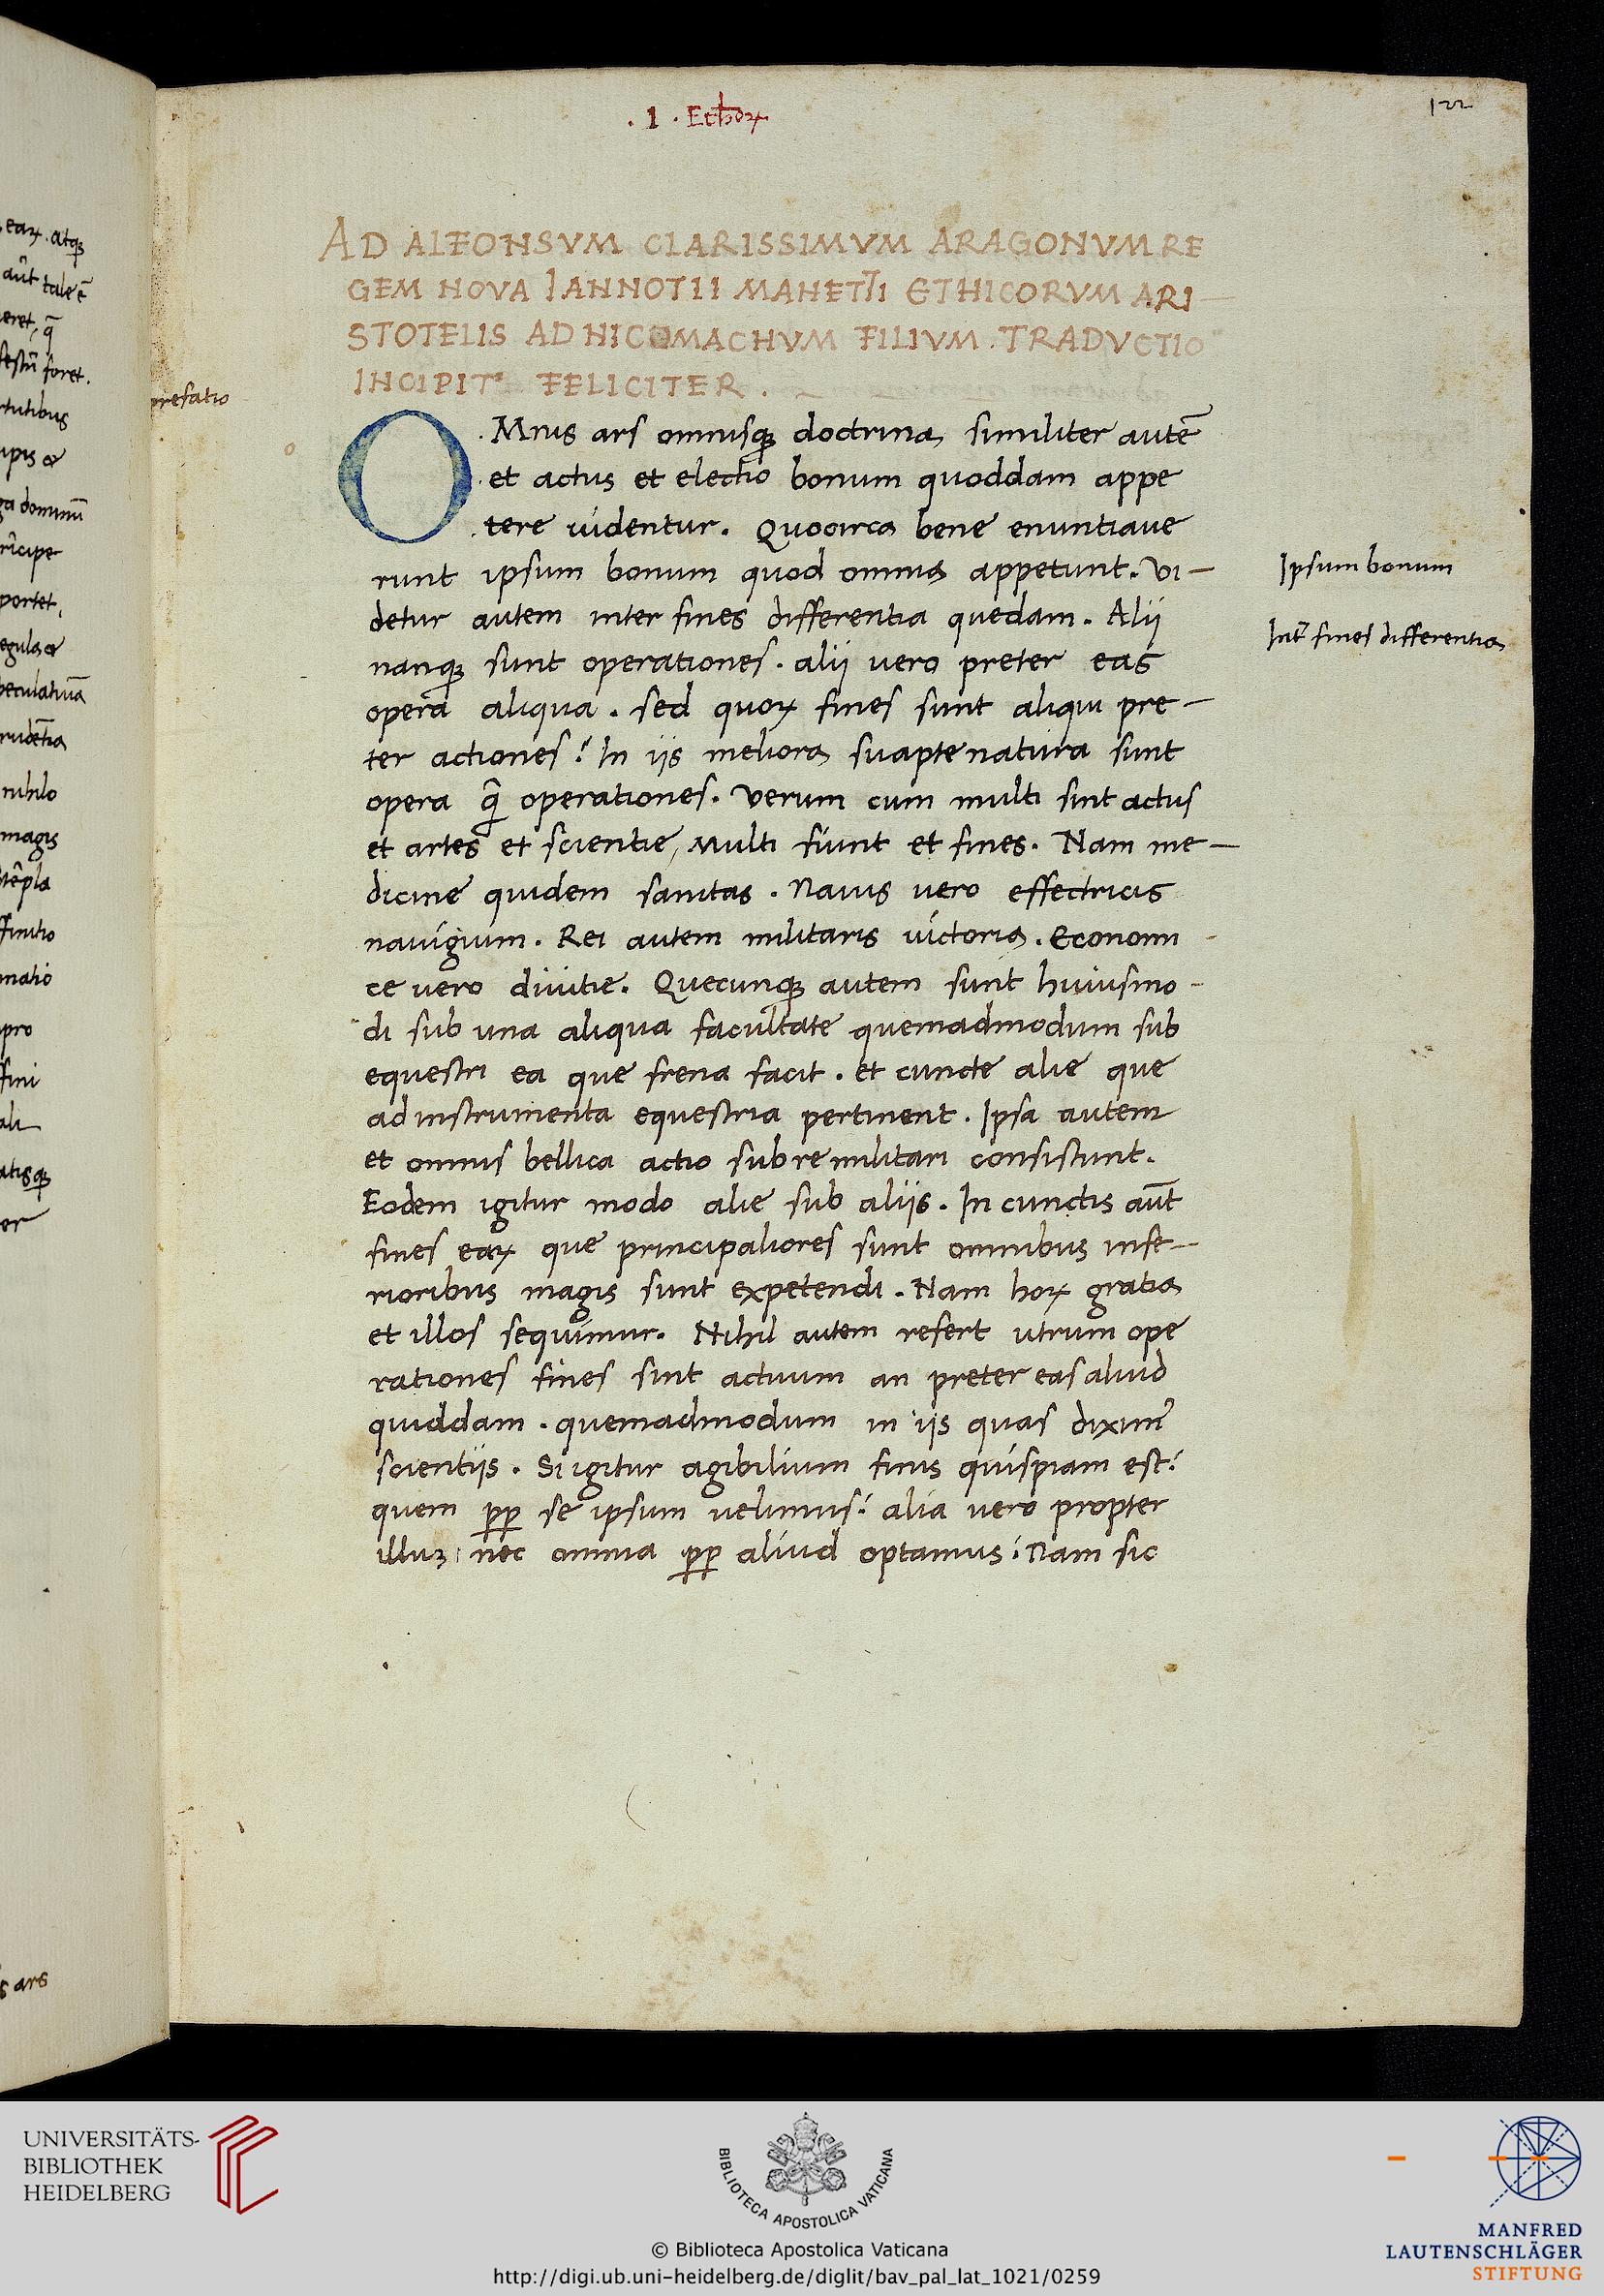 . 1 . Ethoꝝ
122
AD ALFONSVM CLARISSIMVM ARAGONVM RE
GEM NOVA IANNOTII MANETTI ETHICORVM ARI-
STOTELIS AD NICOMACHVM FILIVM . TRADVCTIO
INCIPIT FELICITER .
prefatio
OMnis ars omnisqꝫ doctrina, similiter autē
et actus et electio bonum quoddam appe
tere uidentur. Quocirca bene enuntiaue
runt ipsum bonum quod omnia appetunt. Vi-
Ipsum bonum
detur autem inter fines differentia quedam. Alii
Int͛ fines differentia
nanqꝫ sunt operationes. alii vero preter eas
opera aliqua. sed quoꝝ fines sunt aliqui pre-
ter actiones! In iis meliora suapte natura sunt
opera q̄ operationes. Verum cum multi sint actus
et artes et scientie, multi fiunt et fines. Nam me-
dicine quidem sanitas. Nauis vero effectricis
nauigium. Rei autem militaris uictoria. Economi-
ce vero diuitie. Quecunqꝫ autem sunt huiusmo-
di sub una aliqua facultate quemadmodum sub
equestri ea que frena facit. et cuncte alie que
ad instrumenta equestria pertinent. Ipsa autem
et omnis bellica actio sub re militari consistunt.
Eodem igitur modo alie sub aliis. In cunctis aūt
fines eaꝝ que principaliores sunt omnibus infe-
rioribus magis sunt expetendi. Nam hoꝝ gratia
et illos sequimur. Nihil autem refert utrum ope
rationes fines sint actuum an preter eas aliud
quiddam. quemadmodum in iis quas diximꝰ
scientiis. Si igitur agibilium finis quispiam est!
quem ꝓp se ipsum uelimus! alia vero propter
illuꝫ: nec omnia ꝓp aliud optamus! Nam sic
eaꝝ. atqꝫ
aūt tale ē
eret, q̄
festū foret.
rtutibus
portet,
nihilo
magis
finitio
matio
pro
fini
ali-
atisqꝫ
er
s ars
UNIVERSITÄTS-
BIBLIOTHEK
HEIDELBERG
BIBLIOTECA APOSTOLICA VATICANA
© Biblioteca Apostolica Vaticana
http://digi.ub.uni-heidelberg.de/diglit/bav_pal_lat_1021/0259
MANFRED
LAUTENSCHLÄGER
STIFTUNG